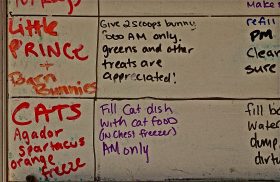 Make s
Little
PRINCE
+
Barn
Bunnies
Give 2 scoops bunny
food AM only.
greens and other
treats are
appreciated!
refil
PM
Clean
sure
CATS
Agador
spartacus
orange
freeze
Fill Cat dish
with cat food
(in chest freezer)
AM only
fill bo
water
dump
dirt